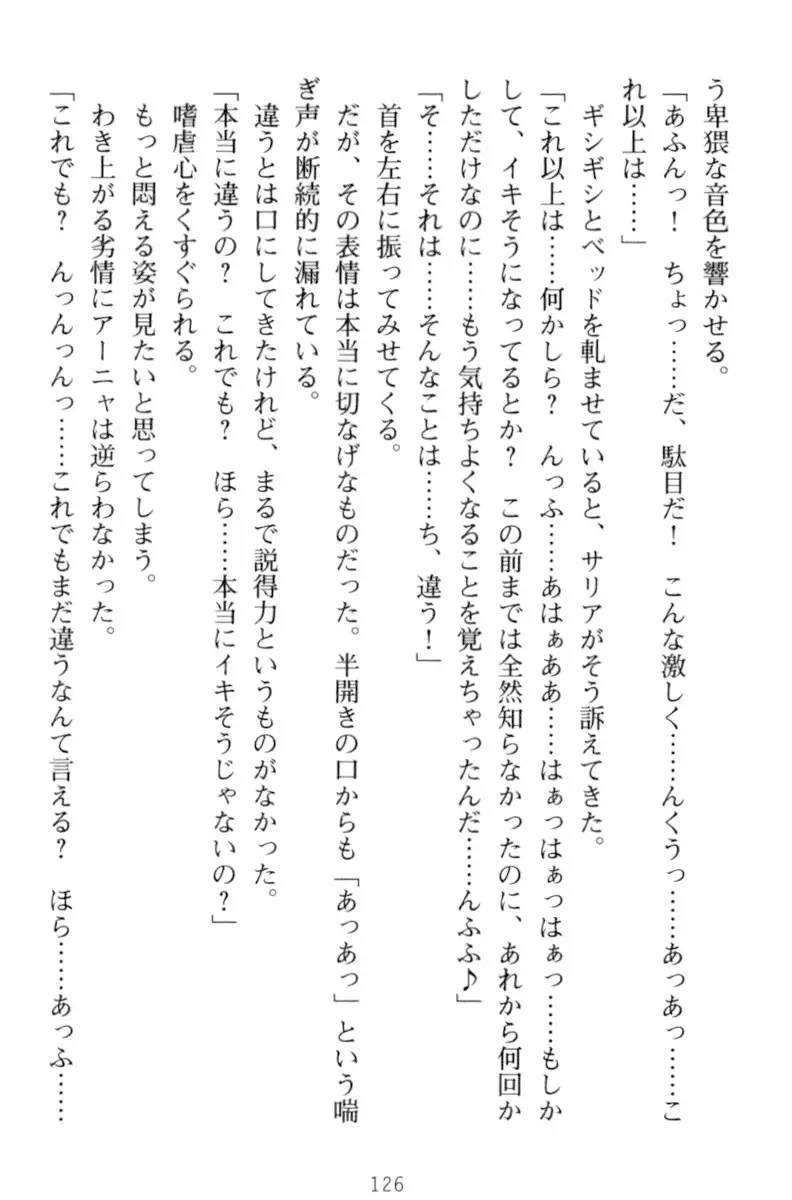 う卑猥な音色を響かせる。
「あふんっ！　ちょっ……だ、駄目だ！　こんな激しく……んくうっ……あっあっ……こ
れ以上は……」
ギシギシとベッドを軋ませていると、サリアがそう訴えてきた。
「これ以上は……何かしら？　んっふ……あはぁああ……はぁっはぁっはぁっ……もしか
して、イキそうになってるとか？　この前までは全然知らなかったのに、あれから何回か
しただけなのに……もう気持ちよくなることを覚えちゃったんだ……んふふ♪」
「そ……それは……そんなことは……ち、違う！」
首を左右に振ってみせてくる。
だが、その表情は本当に切なげなものだった。半開きの口からも「あっあっ」という喘
ぎ声が断続的に漏れている。
違うとは口にしてきたけれど、まるで説得力というものがなかった。
「本当に違うの？　これでも？　ほら……本当にイキそうじゃないの？」
嗜虐心をくすぐられる。
もっと悶える姿が見たいと思ってしまう。
わき上がる劣情にアーニャは逆らわなかった。
「これでも？　んっんっんっ……これでもまだ違うなんて言える？　ほら……あっふ……
126